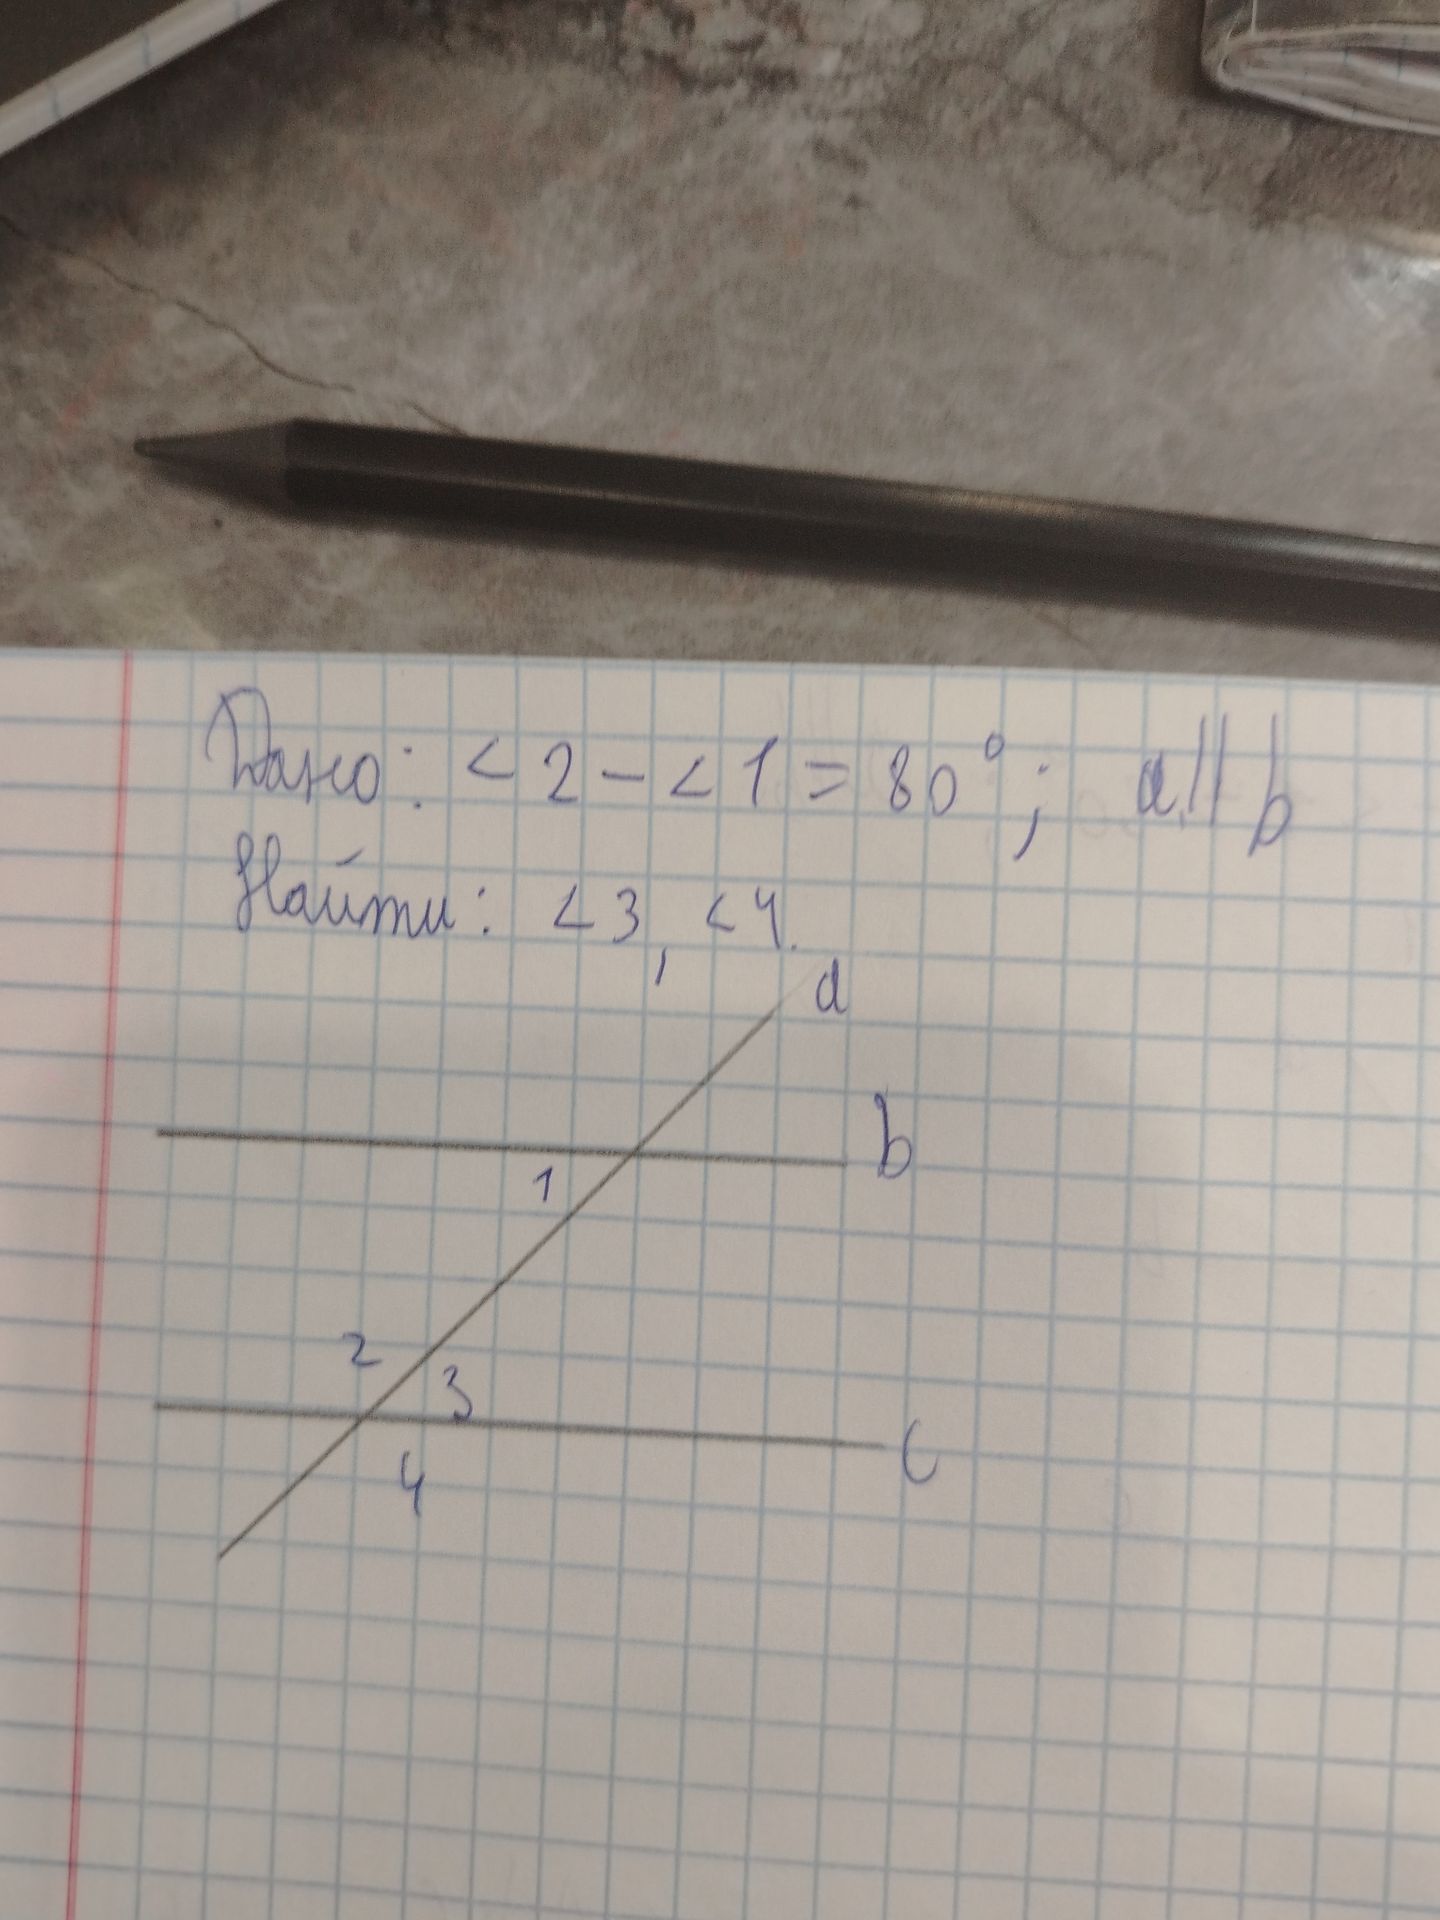 Дано: <2-<1=80°; a||b
Найти: <3, <4.
a
b
1
2
3
c
4